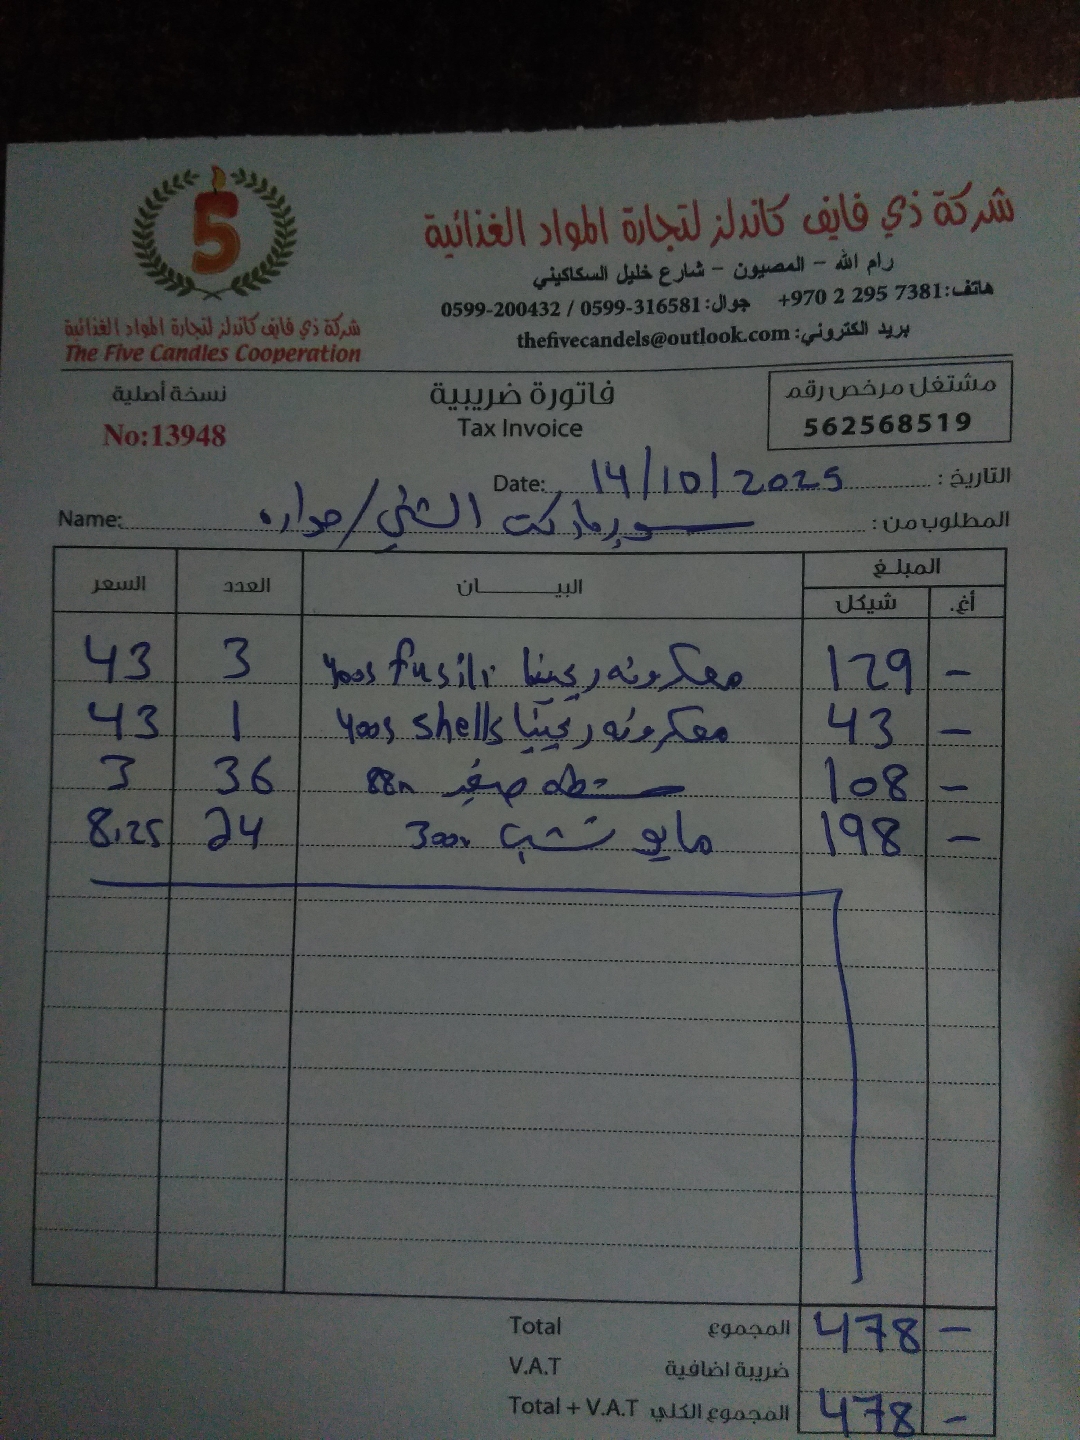 5
شركة ذي فايف كاندلز لتجارة المواد الغذائية
The Five Candles Cooperation
شركة ذي فايف كاندلز لتجارة المواد الغذائية
رام الله - المصيون - شارع خليل السكاكيني
هاتف: +970 2 295 7381 جوال: 0599-316581 / 0599-200432
بريد الكتروني: thefivecandels@outlook.com
مشتغل مرخص رقم
562568519
فاتورة ضريبية
Tax Invoice
نسخة أصلية
No:13948
التاريخ: 14/10/2025 Date:
المطلوب من: سوبرماركت / حواره Name:
المبلغ البيـــــان العدد السعر
أغ. شيكل
- 129 معكرونه ريجينا fusilli 400g 3 43
- 43 معكرونه ريجينا shells 400g 1 43
- 108 شطه صغير 88 36 3
- 198 مايو 300 24 8.25
- 478 المجموع Total
ضريبة اضافية V.A.T
- 478 المجموع الكلي Total + V.A.T